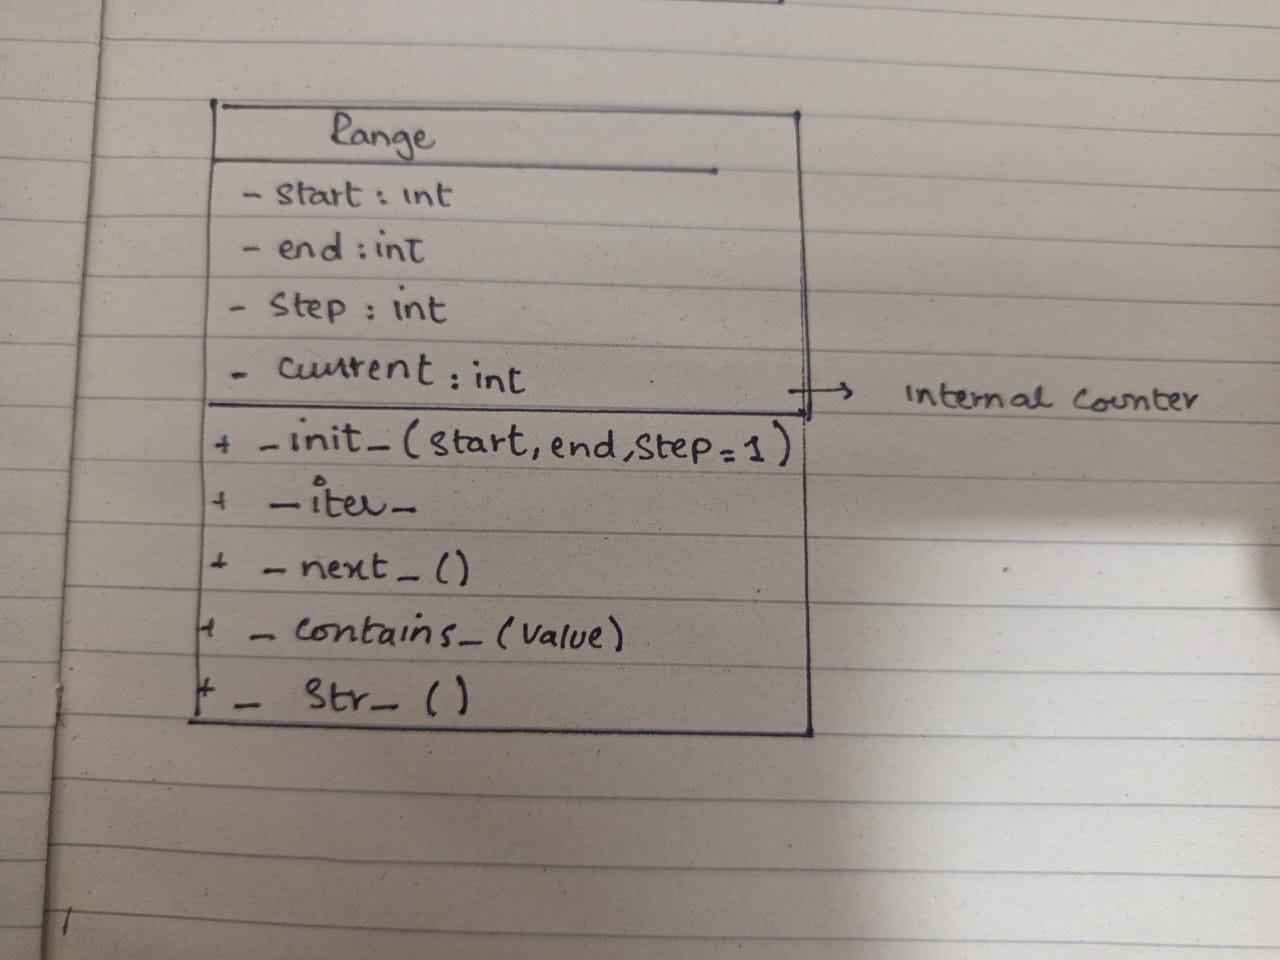 Range
- start : int
- end : int
- step : int
- current : int
→ internal counter
+ _init_(start, end, step = 1)
+ _iter_
+ _next_()
+ _contains_(value)
+ _str_()